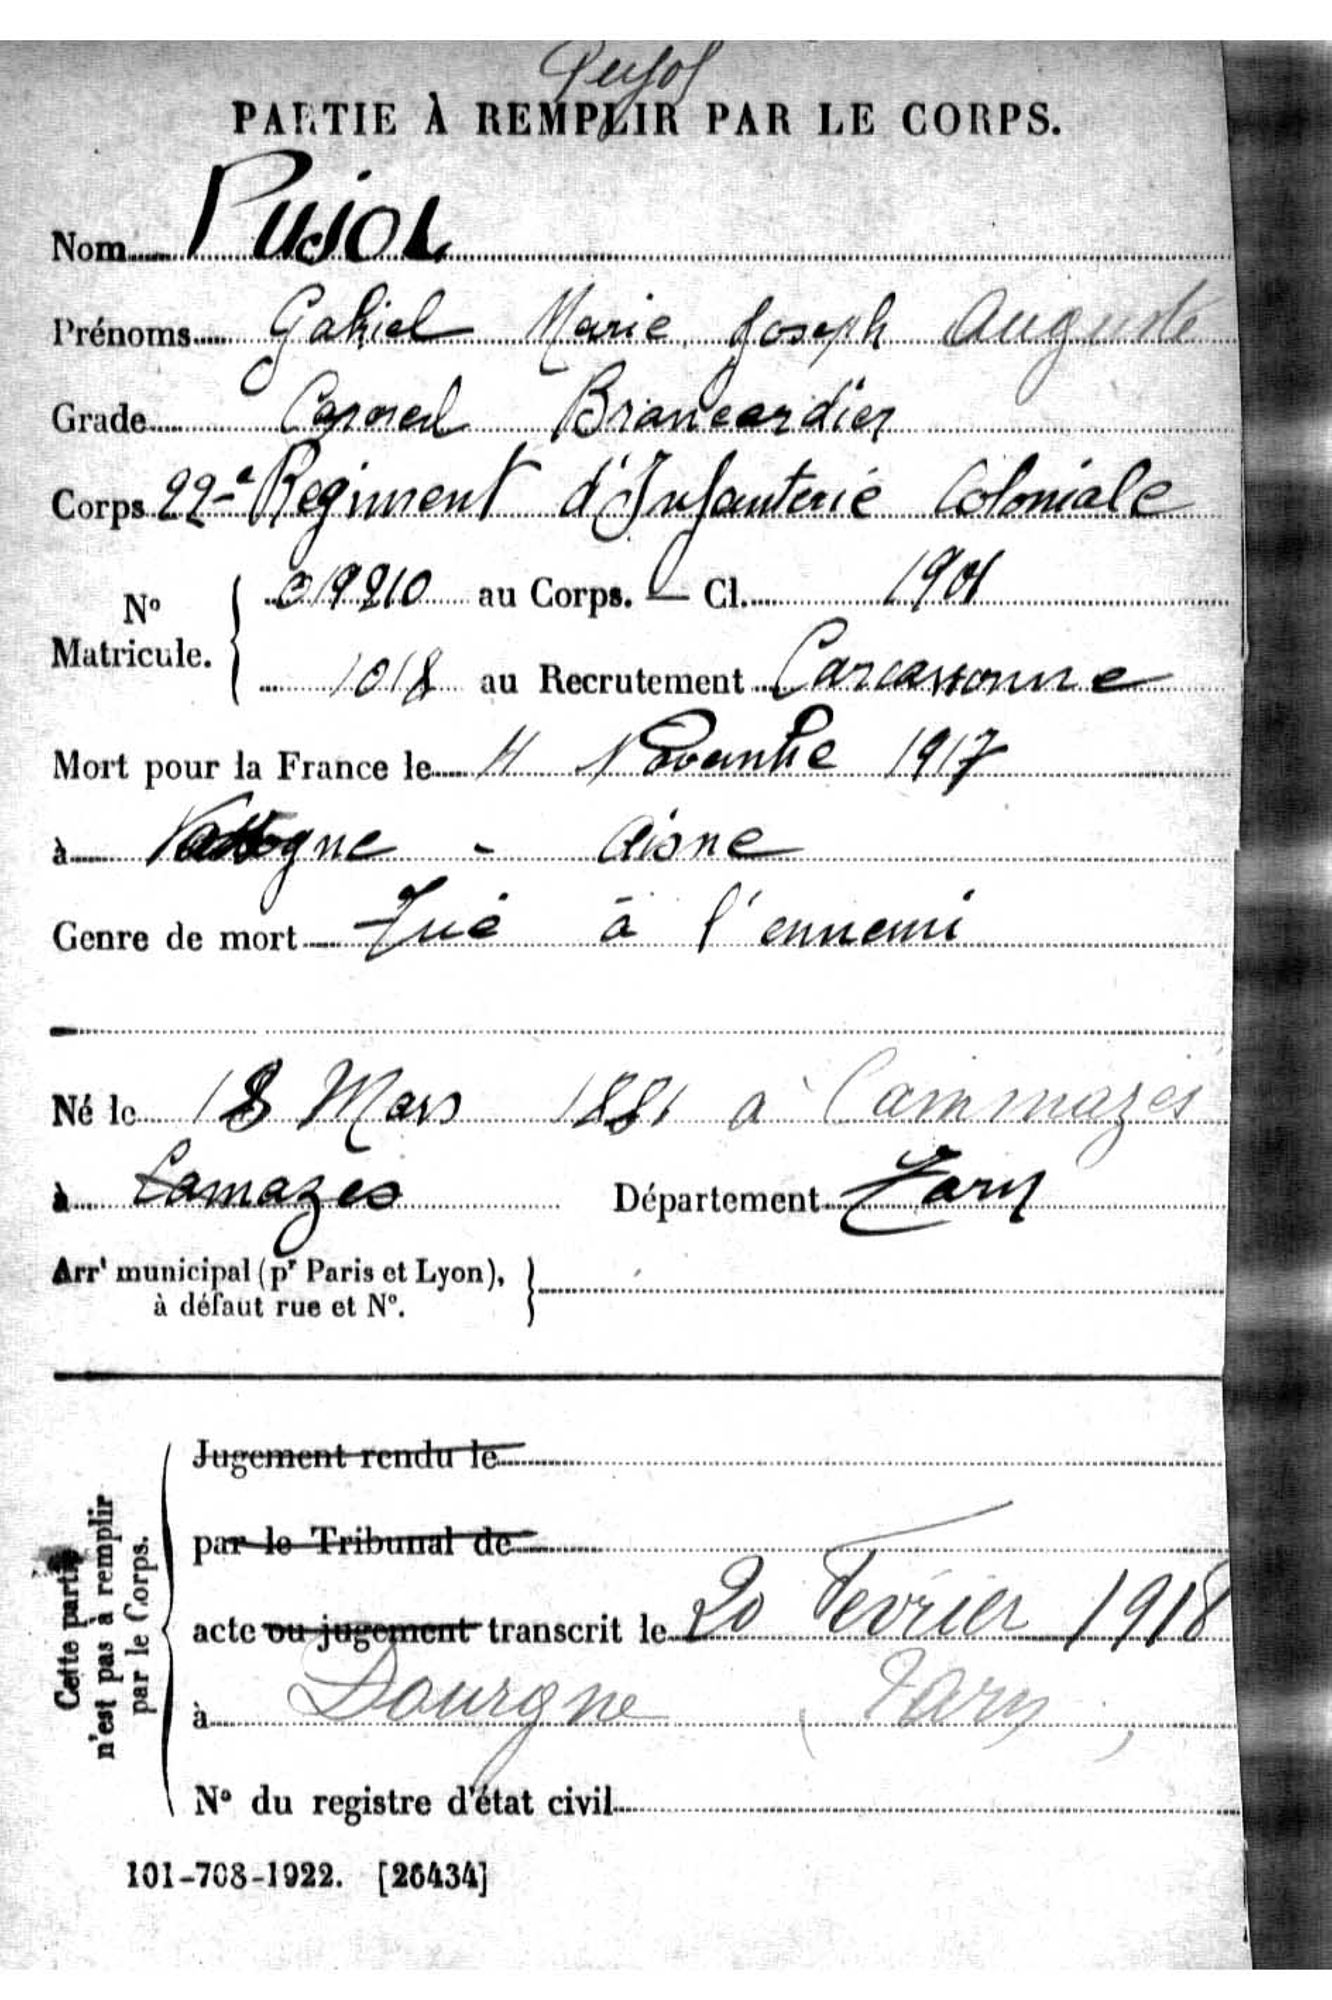 Pujol
PARTIE À REMPLIR PAR LE CORPS.
Nom PUJOL
Prénoms Gabriel Marie Joseph Auguste
Grade Caporal Brancardier
Corps 22e Régiment d'Infanterie Coloniale
No Matricule. 019210 au Corps. — Cl. 1901
1018 au Recrutement Carcassonne
Mort pour la France le Novembre 1917
à Vassogne - Aisne
Genre de mort Tué à l'ennemi
Né le 18 Mars 1881 à Cammazes
à Lamazes Département Tarn
Arrt municipal (pr Paris et Lyon),
à défaut rue et No.
Cette partie
n'est pas à remplir
par le Corps.
Jugement rendu le
par le Tribunal de
acte ou jugement transcrit le 20 Février 1918
à Dourgne (Tarn)
No du registre d'état civil
101-708-1922. [26434]